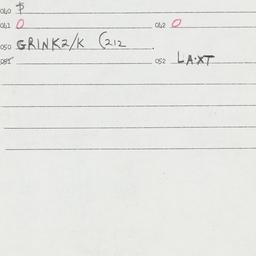 040 $
041 0 042 0
050 GRINK2/K (212
051 052 LA:XT